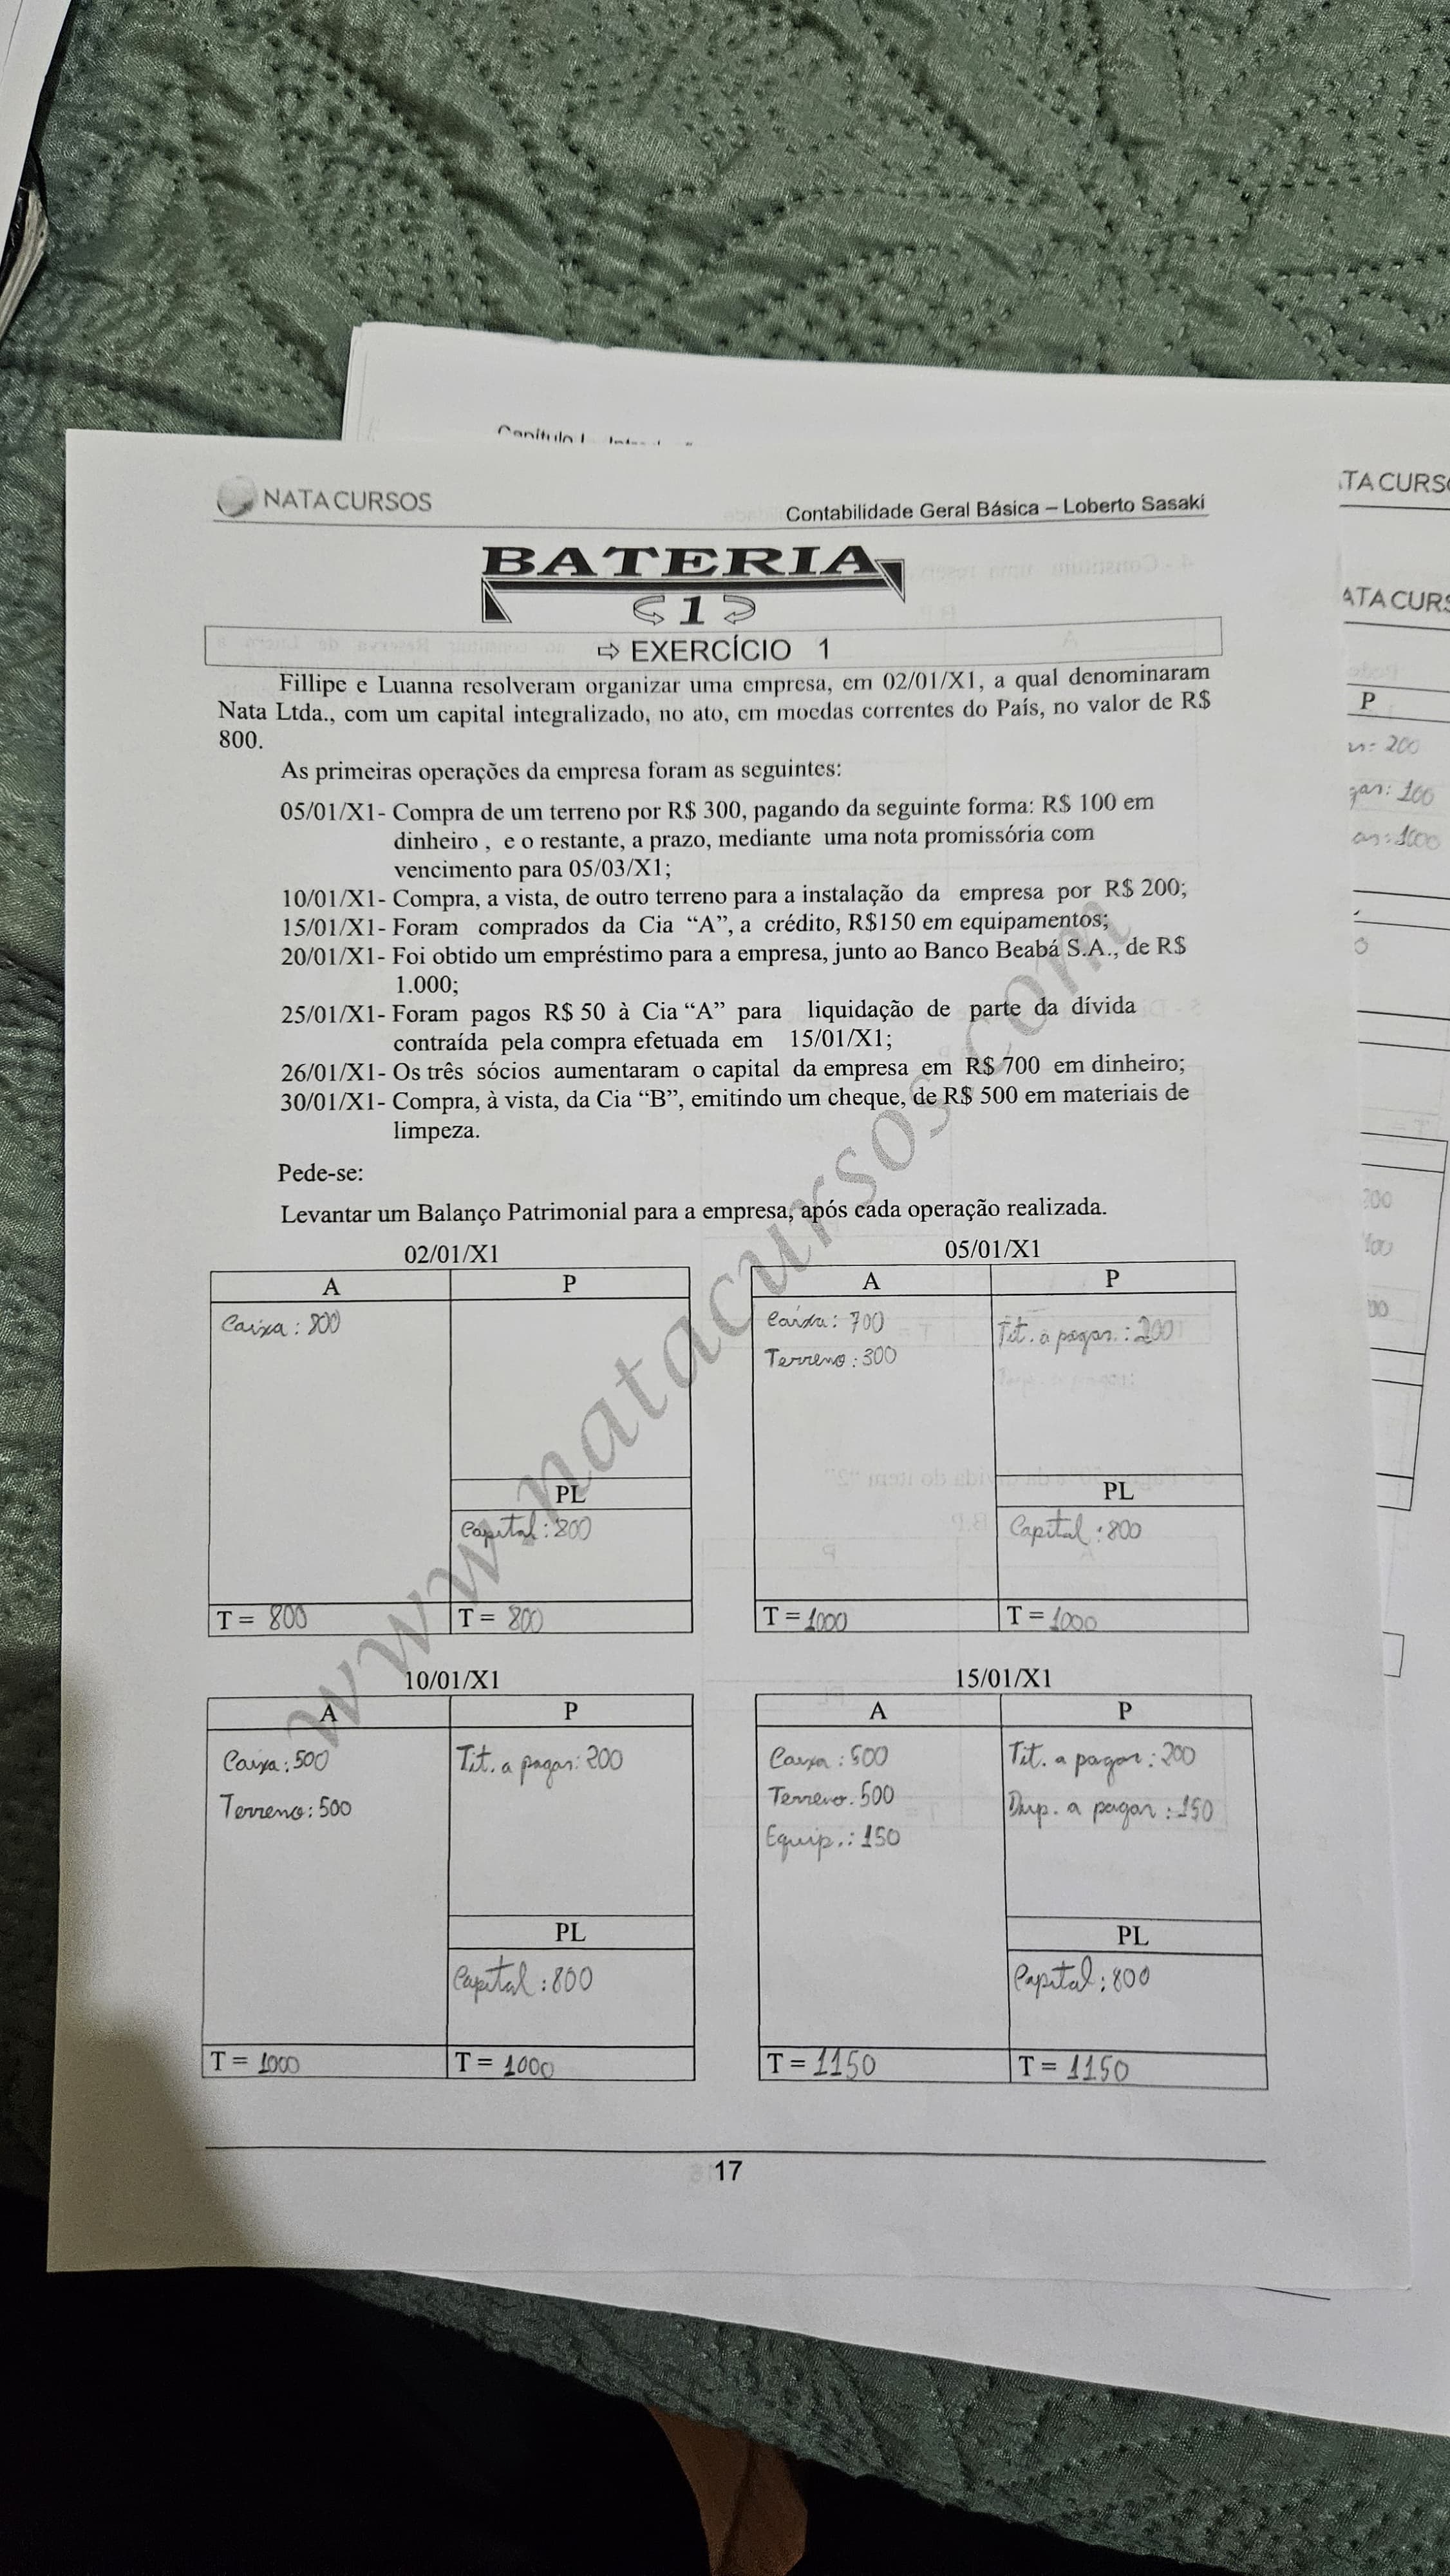 Capítulo I
NATA CURSOS
Contabilidade Geral Básica – Loberto Sasaki
TA CURS
ATA CURS
BATERIA
1
⇨ EXERCÍCIO 1
Fillipe e Luanna resolveram organizar uma empresa, em 02/01/X1, a qual denominaram
Nata Ltda., com um capital integralizado, no ato, em moedas correntes do País, no valor de R$
800.
As primeiras operações da empresa foram as seguintes:
05/01/X1- Compra de um terreno por R$ 300, pagando da seguinte forma: R$ 100 em
dinheiro , e o restante, a prazo, mediante uma nota promissória com
vencimento para 05/03/X1;
10/01/X1- Compra, a vista, de outro terreno para a instalação da empresa por R$ 200;
15/01/X1- Foram comprados da Cia “A”, a crédito, R$150 em equipamentos;
20/01/X1- Foi obtido um empréstimo para a empresa, junto ao Banco Beabá S.A., de R$
1.000;
25/01/X1- Foram pagos R$ 50 à Cia “A” para liquidação de parte da dívida
contraída pela compra efetuada em 15/01/X1;
26/01/X1- Os três sócios aumentaram o capital da empresa em R$ 700 em dinheiro;
30/01/X1- Compra, à vista, da Cia “B”, emitindo um cheque, de R$ 500 em materiais de
limpeza.
Pede-se:
Levantar um Balanço Patrimonial para a empresa, após cada operação realizada.
www.natacursos.com
02/01/X1
A P
Caixa: 800
PL
Capital: 800
T = 800 T = 800
05/01/X1
A P
Caixa: 700 Tit. a pagar.: 200
Terreno: 300
PL
Capital: 800
T = 1000 T = 1000
10/01/X1
A P
Caixa: 500 Tit. a pagar: 200
Terreno: 500
PL
Capital: 800
T = 1000 T = 1000
15/01/X1
A P
Caixa: 500 Tit. a pagar: 200
Terreno. 500 Dup. a pagar: 150
Equip.: 150
PL
Capital: 800
T = 1150 T = 1150
17
P
200
gar: 100
1000